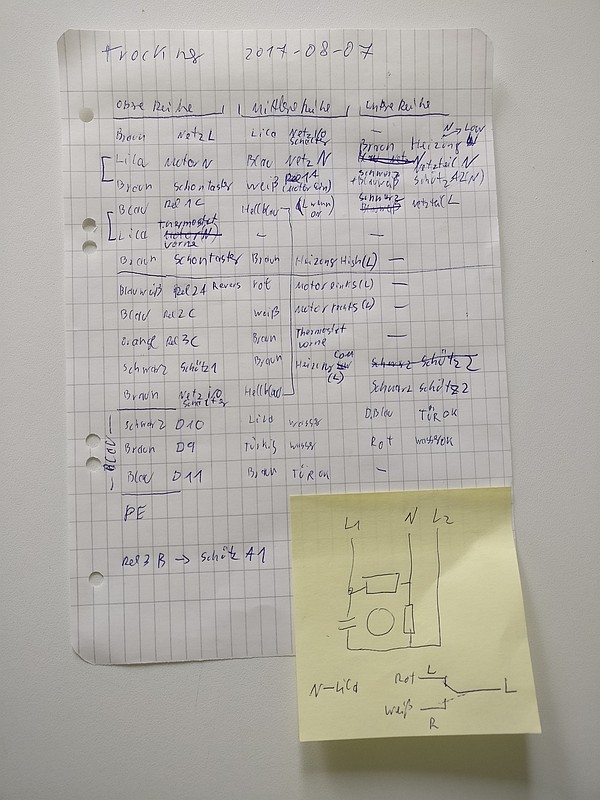 Trocking 2017-08-07
obere Reihe mittlere Reihe untere Reihe
Braun Netz L Lila Netz I/O Schalter —
N Low
Lila Motor N Blau Netz N Braun Heizung N
Netzteil N
Braun Schontaster weiß Rel 1A (Motor an) schwarz + Blauweiß Schütz A2(N)
Blau Rel 1C Hellblau (L wenn an) schwarz Netzteil L
Lila Thermostat vorne — —
Braun Schontaster Braun Heizung High(L) —
Blauweiß Rel 2A Revers rot Motor links(L) —
Blau Rel 2C weiß Motor rechts(L) —
Orange Rel 3C Braun Thermostat vorne —
schwarz Schütz 1 Braun Heizung Low (L) Schwarz Schütz 2
Braun Netz I/O Schalter Hellblau Schwarz Schütz 2
Schwarz D10 Lila wasser D.Blau TÜR OK
Braun D9 Türkis wasser Rot wasser OK
Blau D11 Braun TÜR OK —
Blau
PE
Rel 3 B → Schütz A1
L1 N L2
N-Lila Rot L L
weiß
R